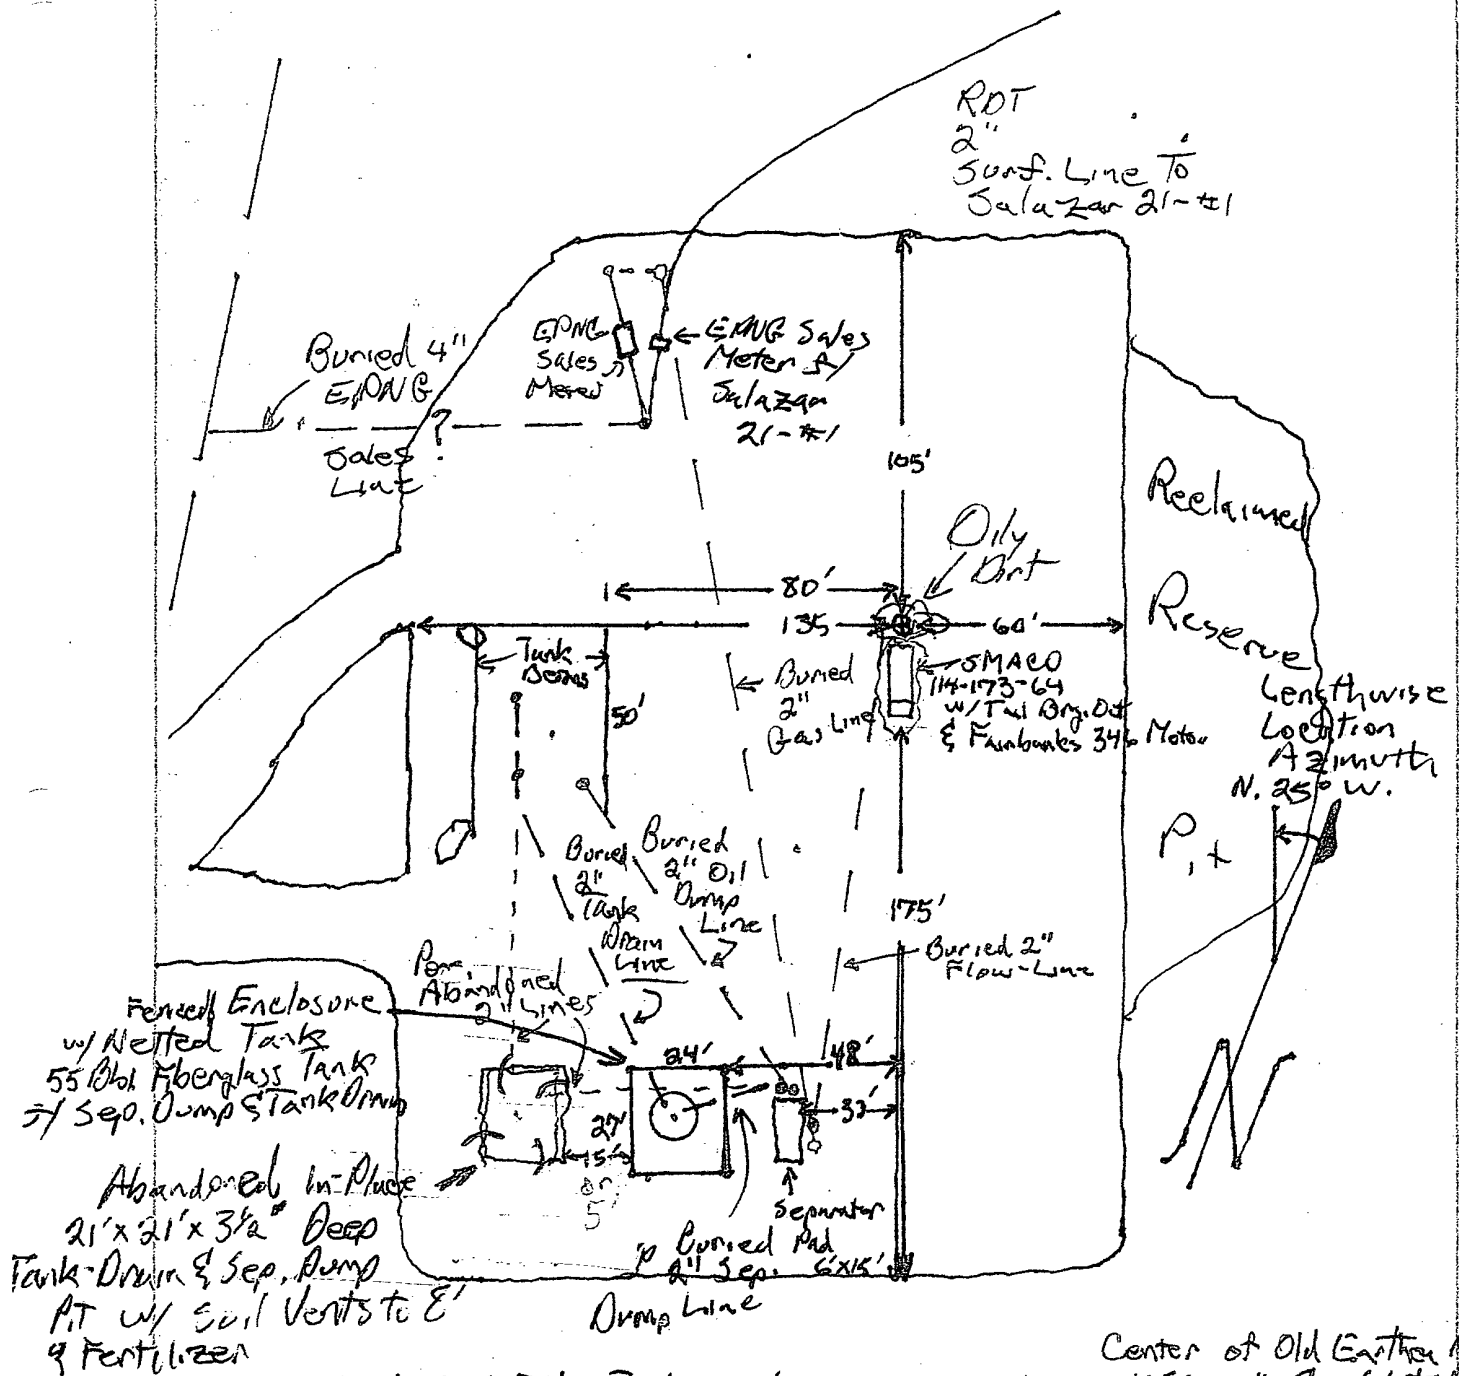 RDT
2"
Surf. Line To
Salazar 21-#1
Buried 4"
EPNG
?
Sales
Line
EPNG
Sales
EPNG Sales
Meter f/
Salazar
21-#1
105'
Oily
Dirt
80'
135
60'
Reclaimed
Reserve
Pit
Tank
Berms
50'
Buried
2"
Gas Line
SMACO
114-173-64
w/ Tail Brg. Out
& Fairbanks 346 Motor
Lengthwise
Location
Azimuth
N. 25° W.
Buried
2"
Tank
Drain
Line
Buried
2" Oil
Dump
Line
175'
Buried 2"
Flow-Line
Abandoned
2" Lines
Fenced Enclosure
w/ Netted Tank
55 Bbl Fiberglass Tank
f/ Sep. Dump & Tank Drain
24'
48'
27'
15'
or
5'
33'
Abandoned In-Place
21' x 21' x 3½' Deep
Tank-Drain & Sep. Dump
Pit w/ Soil Vents to
& Fertilizer
Separator
Pad
6'x15'
Buried
2" Sep.
Dump Line
Center of Old Earthen